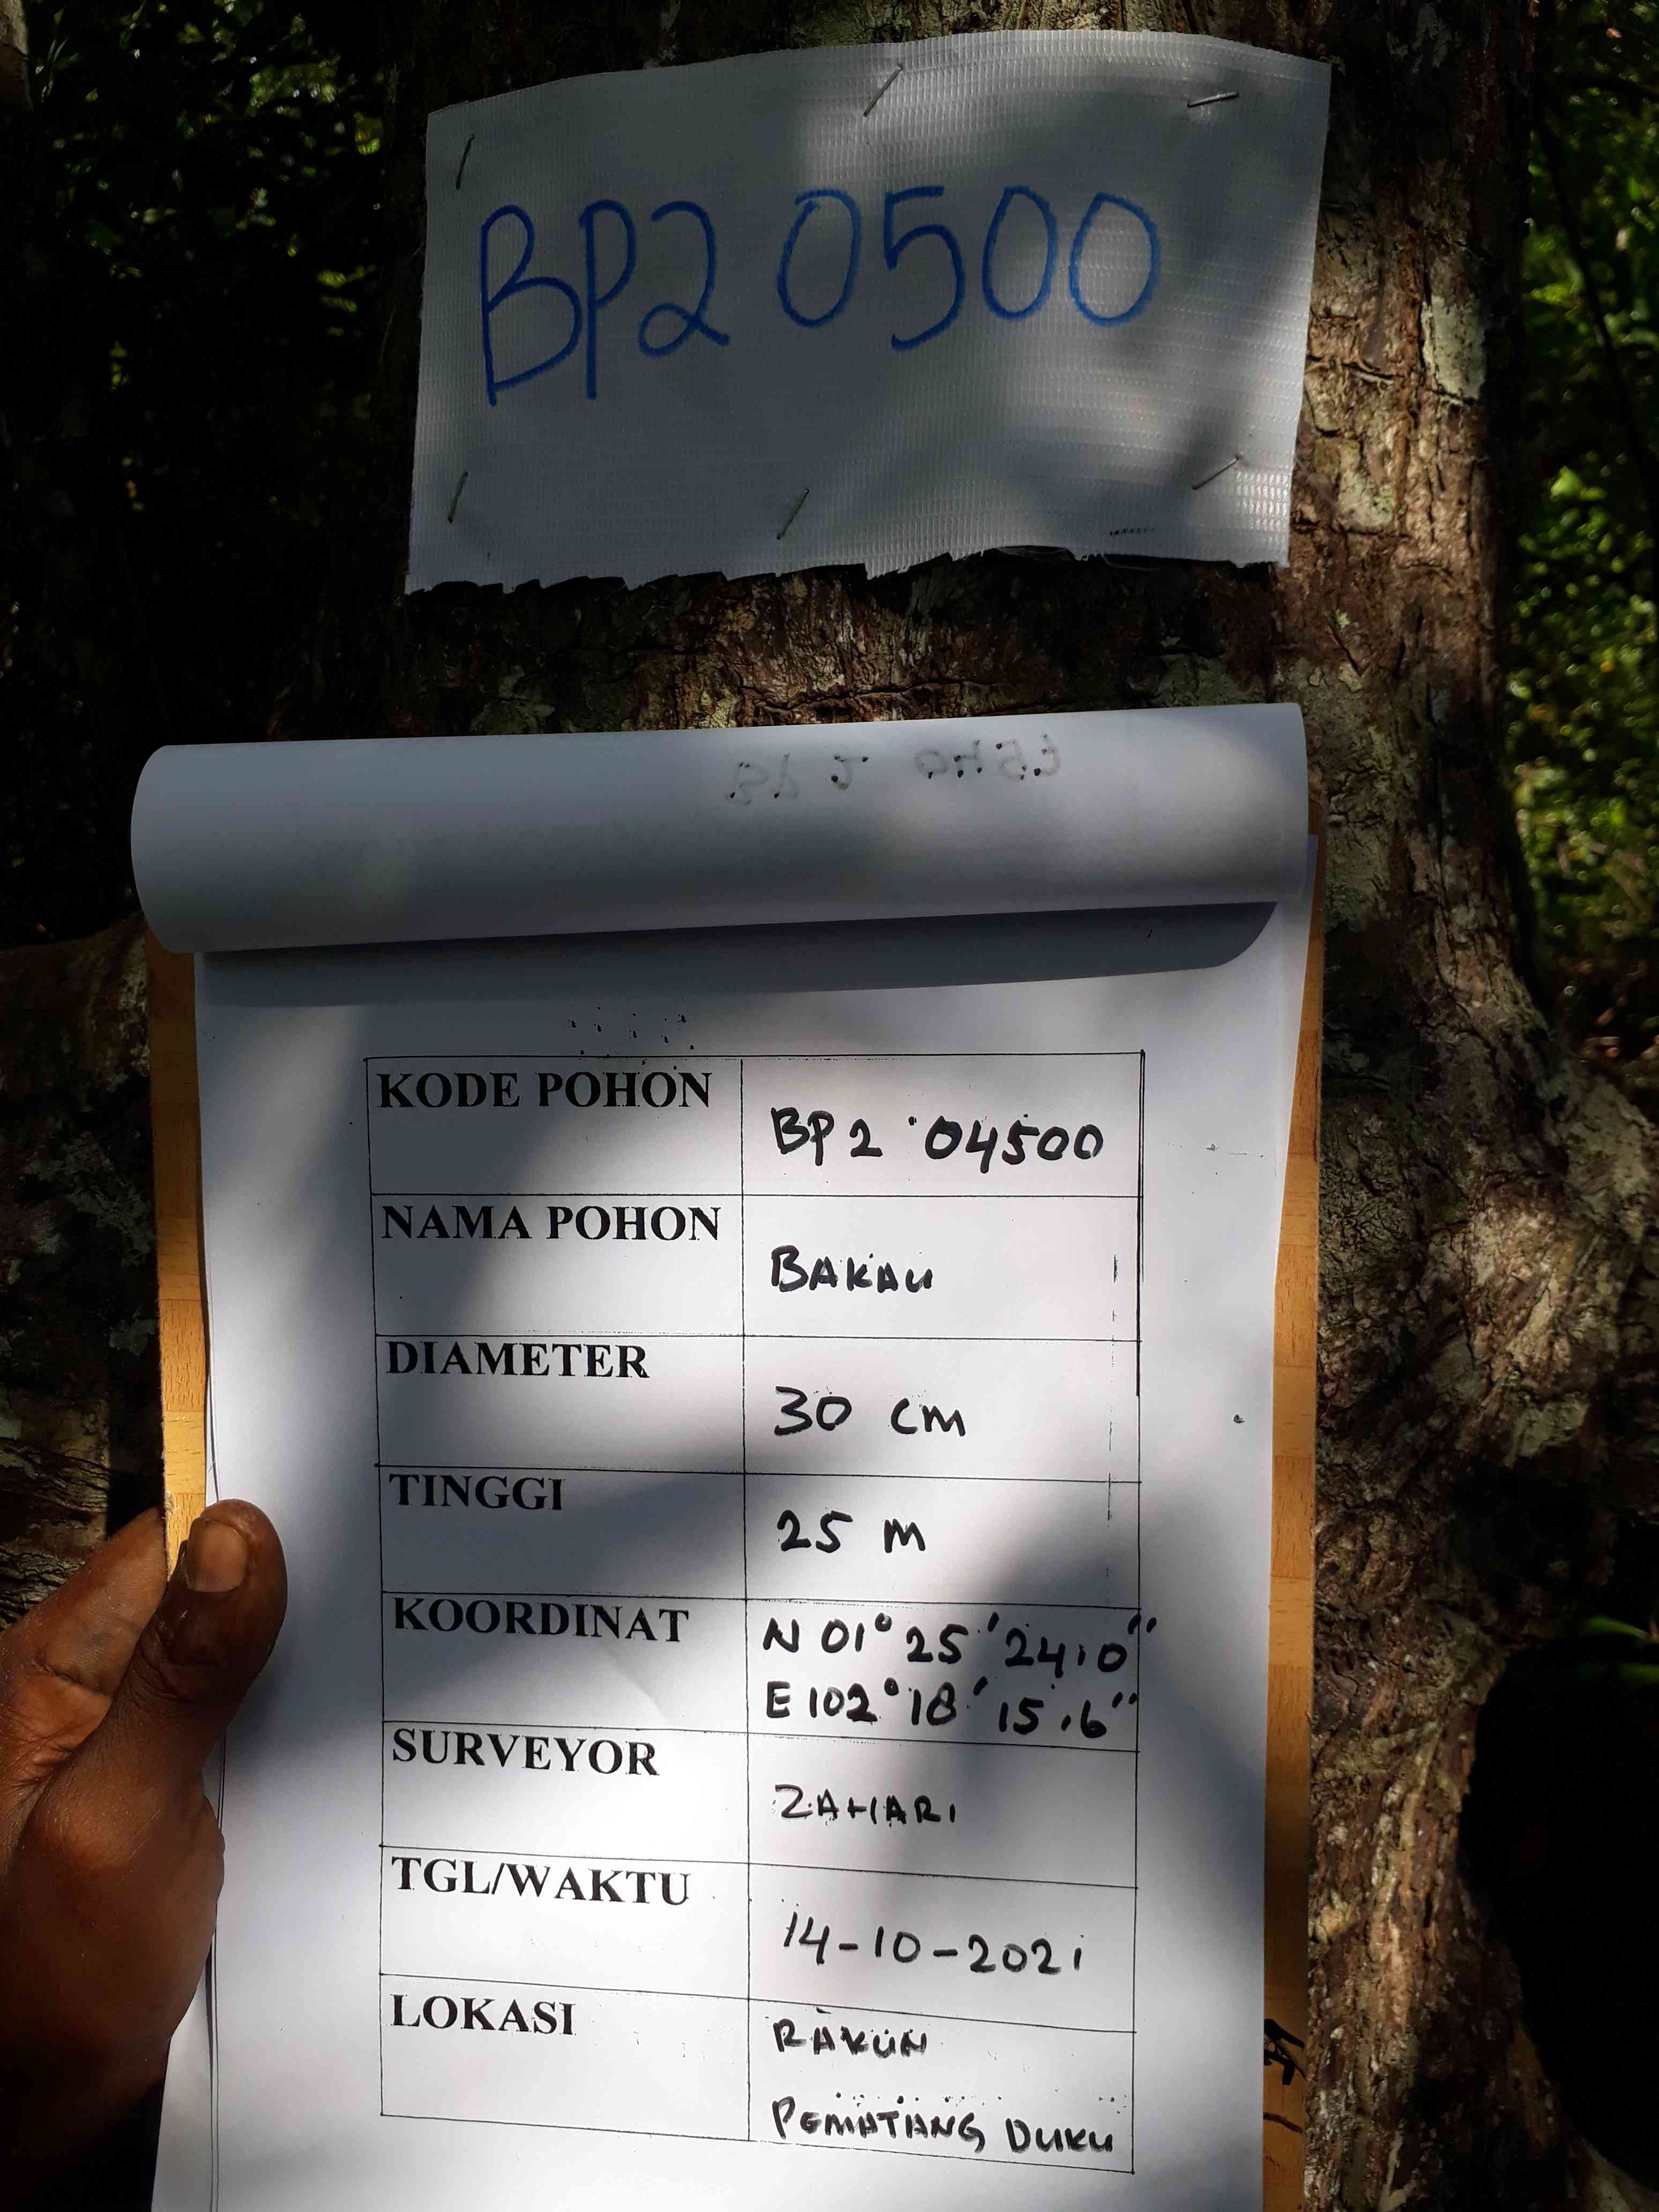 BP2 0500
KODE POHON
BP2 04500
NAMA POHON
BAKAU
DIAMETER
30 cm
TINGGI
25 m
KOORDINAT
N 01° 25' 24.0"
E 102° 18' 15.6"
SURVEYOR
ZAHARI
TGL/WAKTU
14-10-2021
LOKASI
RAKUN
PEMATANG DUKU